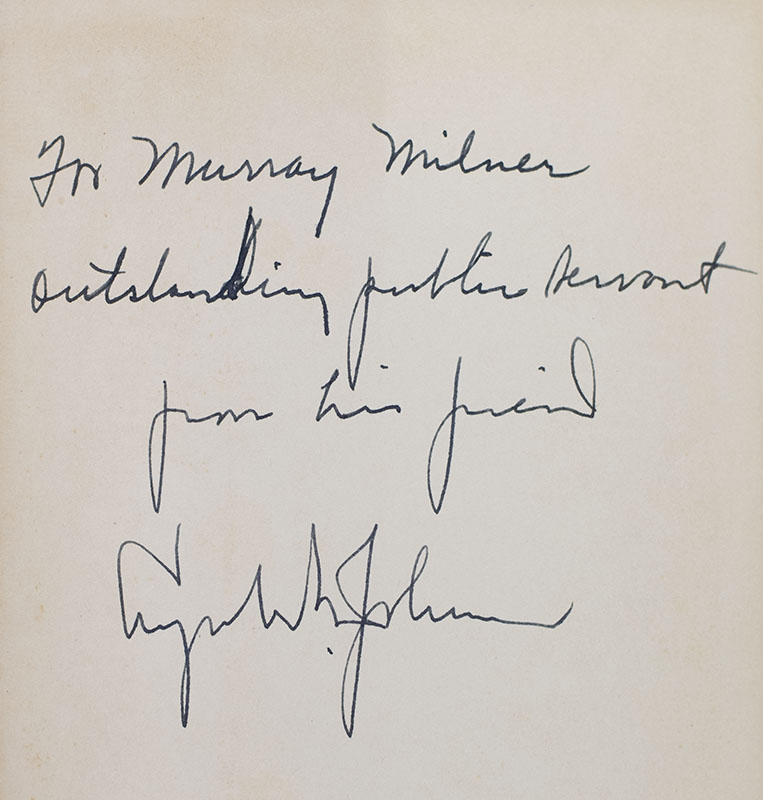 For Murray Milner
outstanding public servant
from his friend
Lyndon B. Johnson